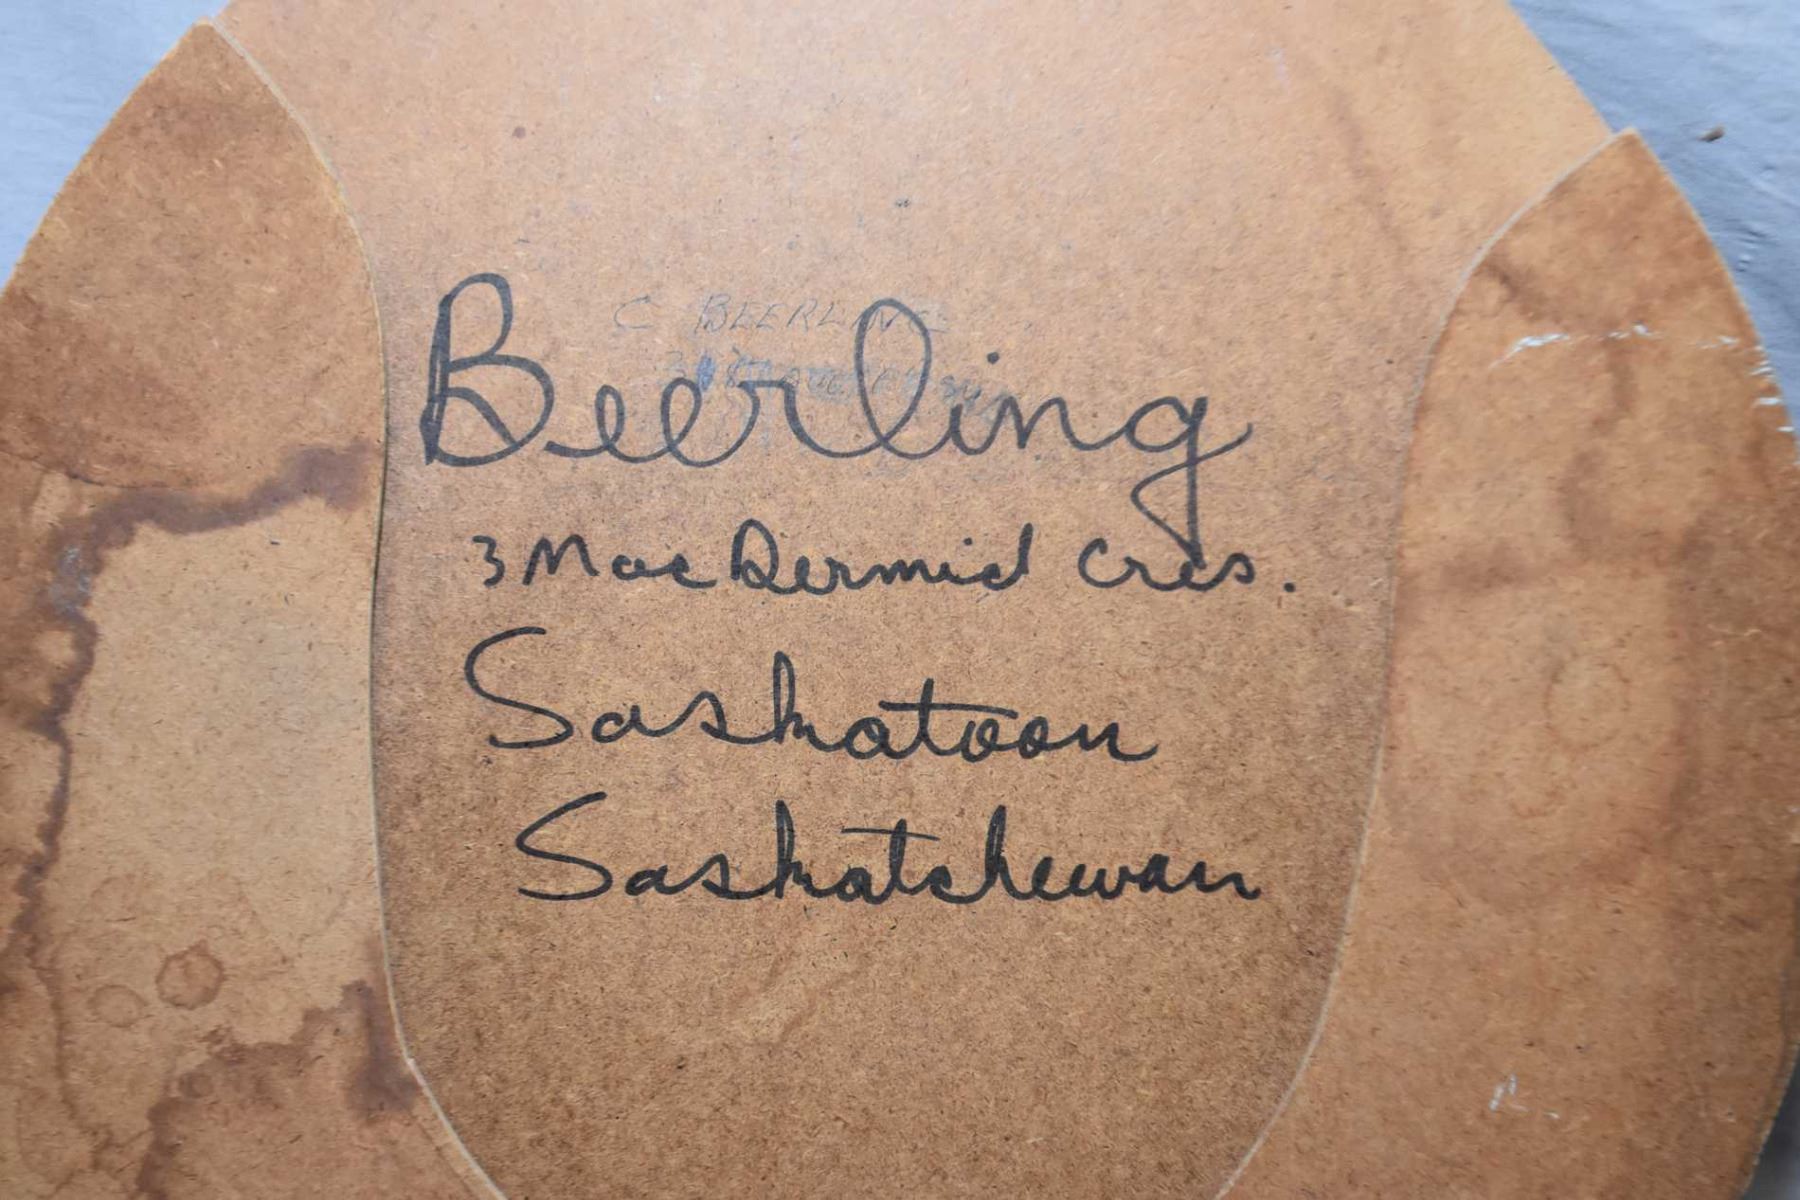 C BEERLING
Beerling
3 MacDermid Cres.
Saskatoon
Saskatchewan